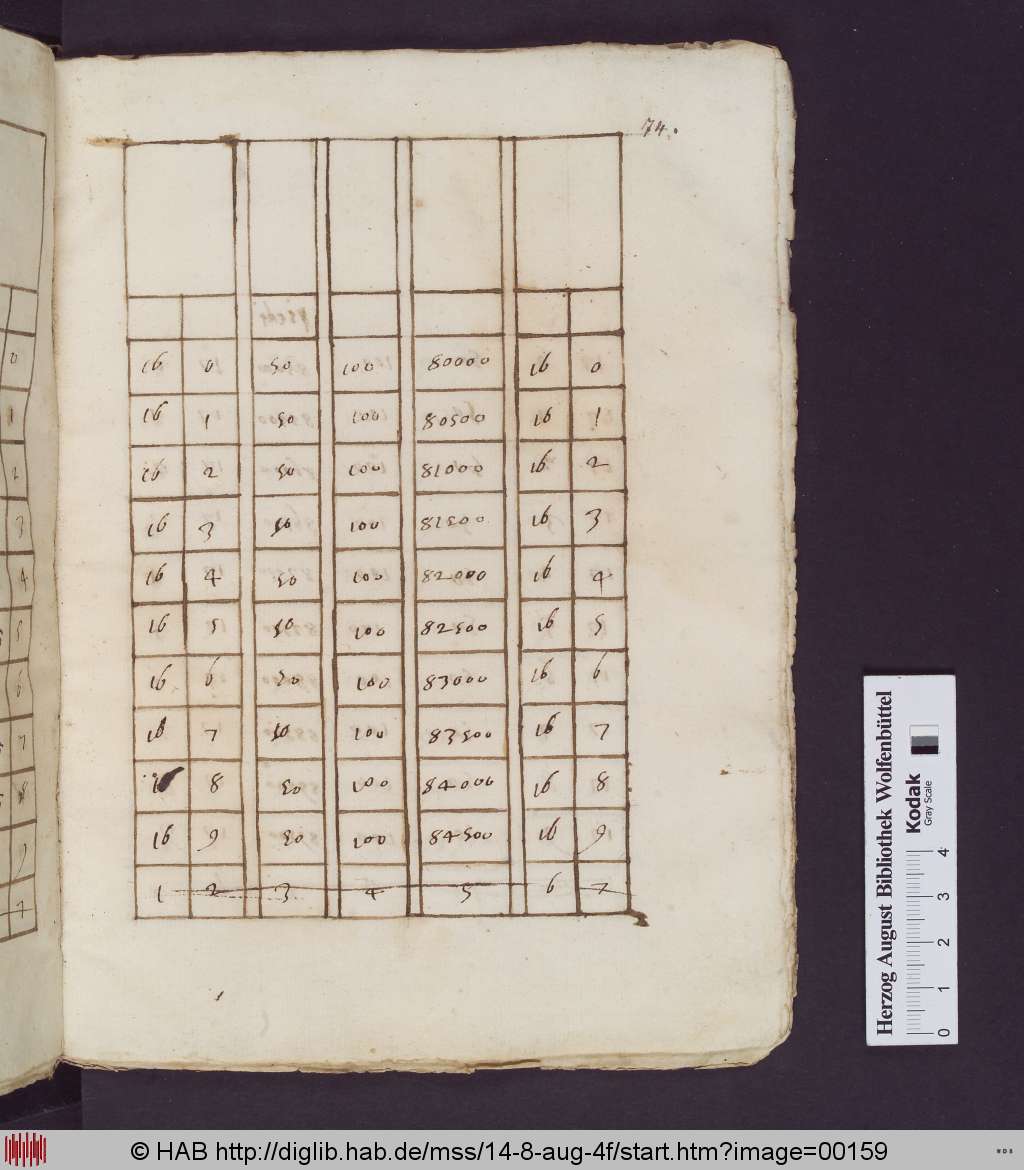 74.
16 0 50 100 80000 16 0
16 1 50 100 80500 16 1
16 2 50 100 81000 16 2
16 3 50 100 81500 16 3
16 4 50 100 82000 16 4
16 5 50 100 82500 16 5
16 6 50 100 83000 16 6
16 7 50 100 83500 16 7
16 8 50 100 84000 16 8
16 9 50 100 84500 16 9
1 2 3 4 5 6 7
0
1
2
3
4
5
6
7
8
9
7
Herzog August Bibliothek Wolfenbüttel
Kodak
Gray Scale
0 1 2 3 4
© HAB http://diglib.hab.de/mss/14-8-aug-4f/start.htm?image=00159